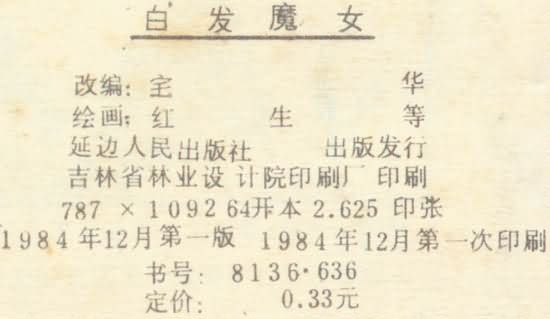 白发魔女
改编：宝 华
绘画：红 生 等
延边人民出版社 出版发行
吉林省林业设计院印刷厂 印刷
787 × 1092 64开本 2.625 印张
1984年12月第一版 1984年12月第一次印刷
书号：8136·636
定价： 0.33元